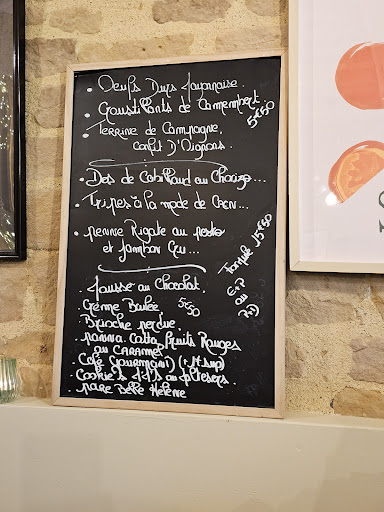 • Oeufs Durs Mayonnaise.
• Croustillants de Camembert
5€50
• Terrine de Campagne,
confit D'Oignons.
• Dos de Cabillaud au Chorizo...
• Tripes à la mode de Caen...
• penne Rigate au pesto
et Jambon Cru...
15€50
E+P
ou
P+D
. Mousse au Chocolat.
. Crème Brulée 5€50
. Brioche perdue.
. panna Cotta fruits Rouges
ou CARAMEL
. Café Gourmand (+1€ sup)
. Cookie's
. poire Belle Hélène